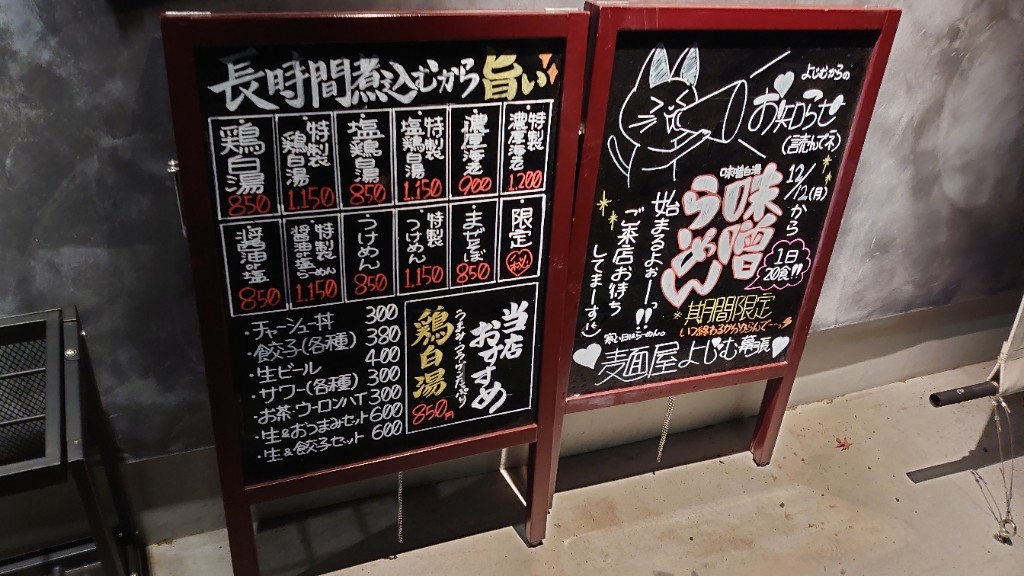 長時間煮込むから旨い
鶏白湯
850
特製
鶏白湯
1.150
塩鶏白湯
850
特製
塩鶏白湯
1.150
濃厚海老
900
特製
濃厚海老
1.200
醤油
850
特製
醤油
1.150
つけめん
850
特製
つけめん
1.150
まぜそば
850
限定
・チャーシュー丼 300
・餃子(各種) 380
・生ビール 400
・サワー(各種) 300
・お茶・ウーロンハイ 300
・生&おつまみセット 600
・生&餃子セット 600
当店
おすすめ
鶏白湯
850円
よじむからの
お知らせ
(読んでネ)
12/2(月)から
味噌白湯
味噌
らぁめん
1日
20食!!
始まるよぉー!!
ご来店お待ち
してまーす
期間限定
寒い日はらーめん。
麺屋よじむ幕張